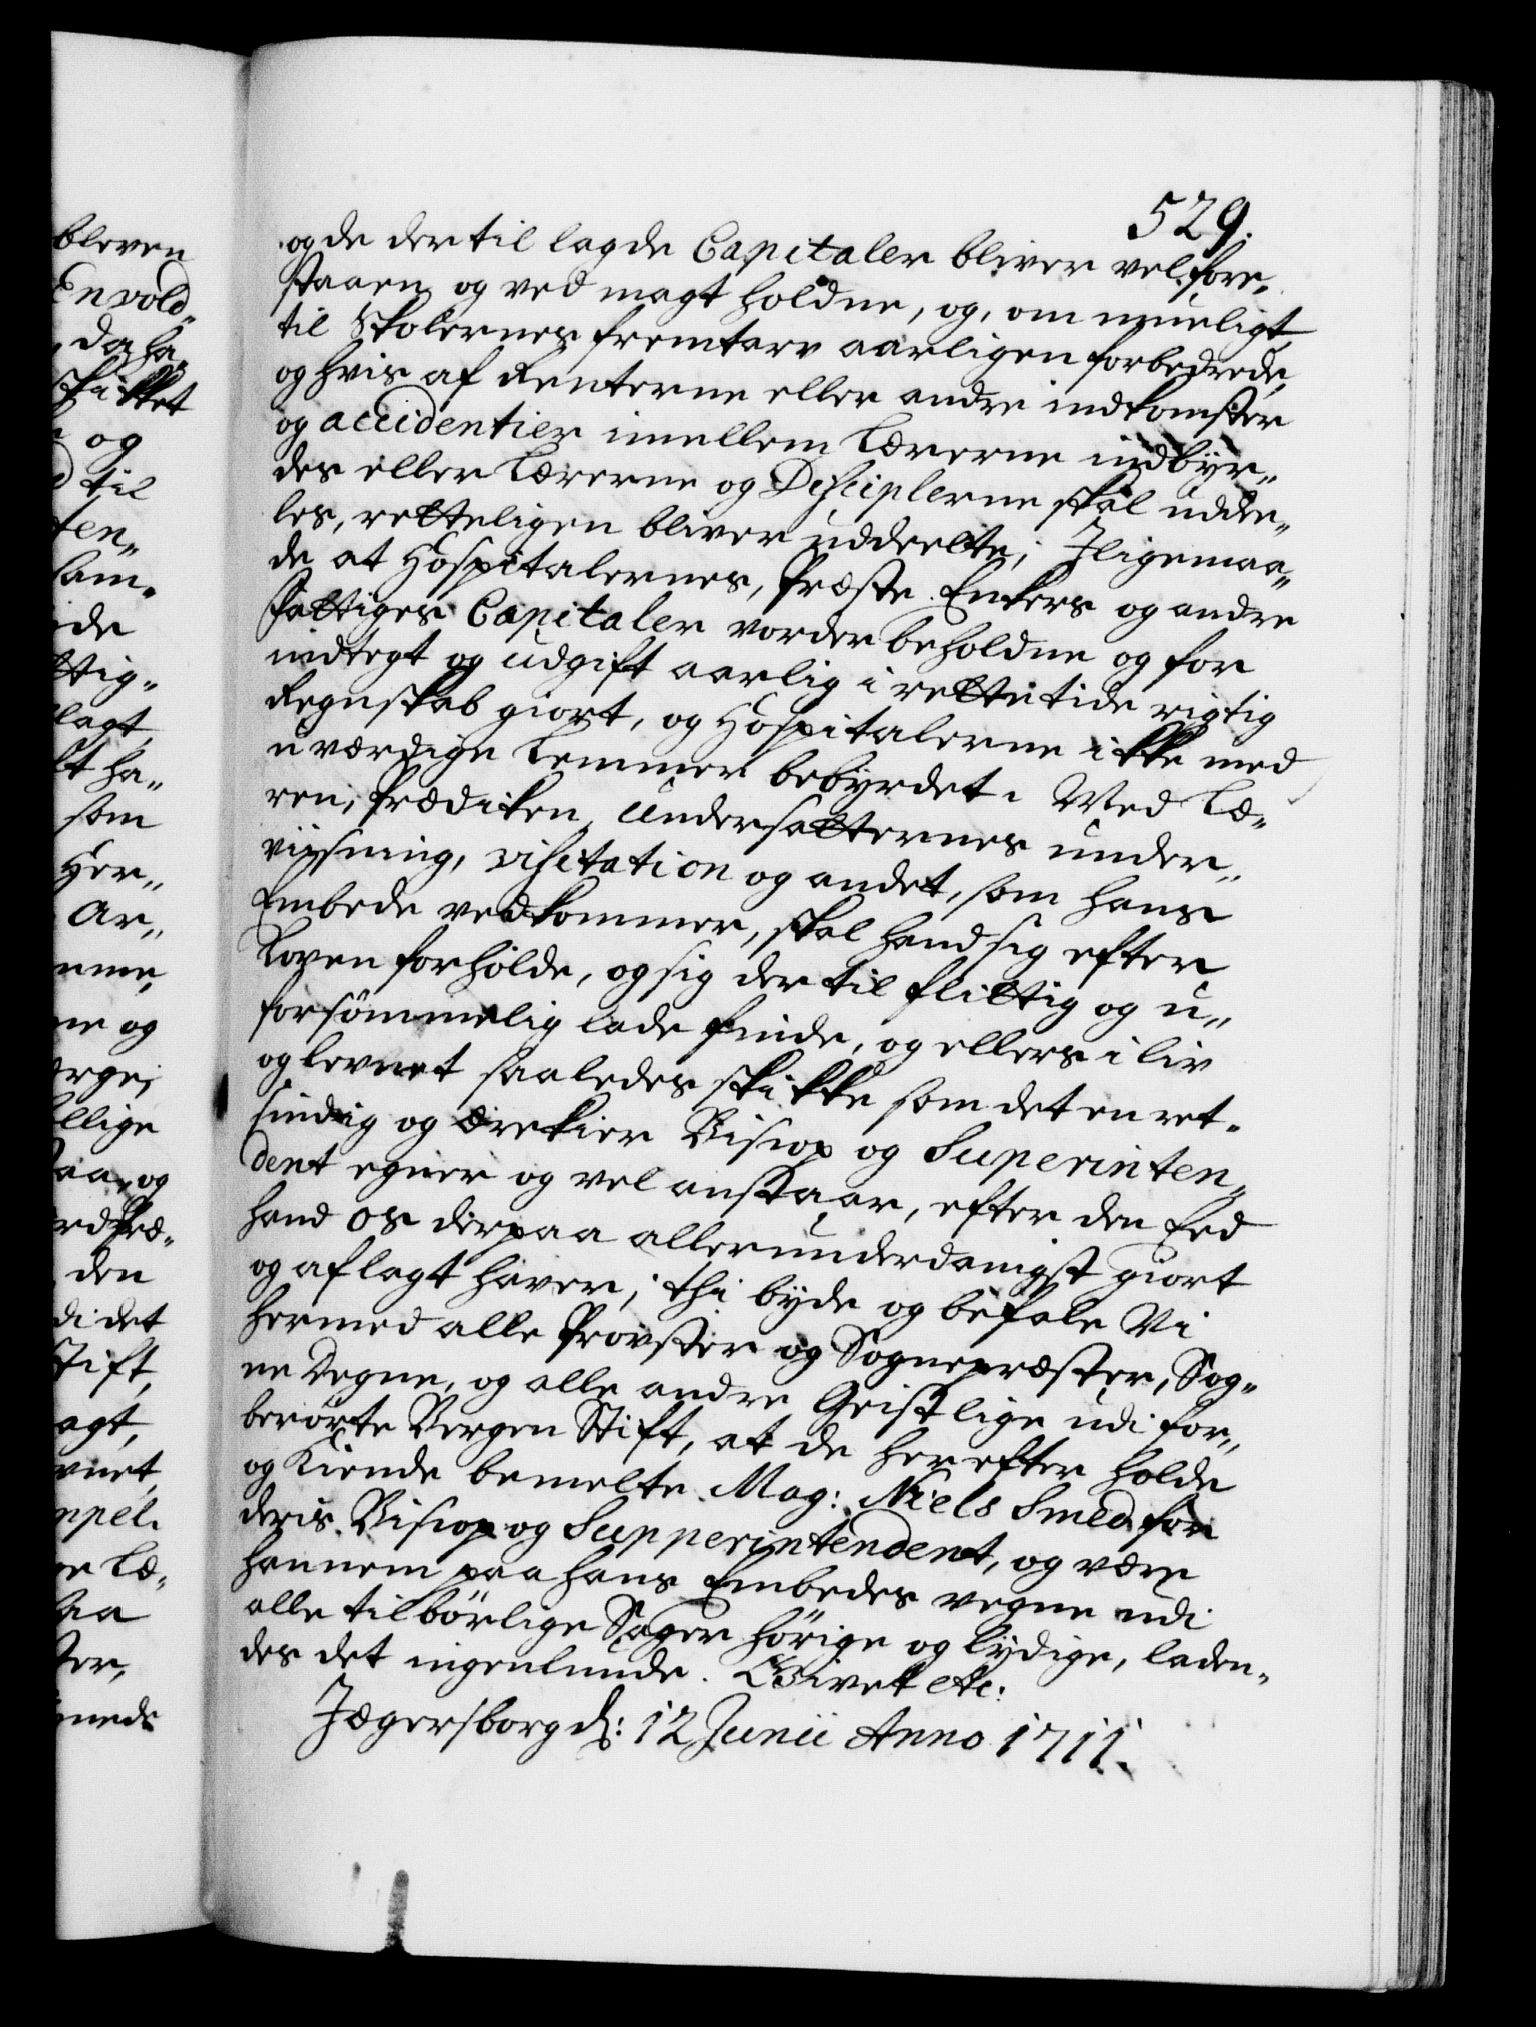 529.
og de der til lagde Capitaler bliver vel fore„
staaen og ved magt holdne, og, om mueligt,
til Skolernes fremtarv aarligen forbedrede,
og hvis af Renterne eller andre indkomster
og accidentier imellem Lærerne indbyr„
des eller Lærerne og Disciplerne skal udde„
les, retteligen bliver uddeelte; Jligemaa„
de at Hospitalernes, Præste Enkers og andre
fattiges Capitaler vorder beholdne og for
indtegt og udgift aarlig i rette tide rigtig
Regnskab giort, og Hospitalerne ikke med
uværdige Lemmer bebyrdet. Med Læ„
ren, Prædiken, Undersatternes under„
viisning, visitation og andet, som hans
Embede vedkommer, skal hand sig efter
Loven forholde, og sig der til flittig og u„
forsömmelig lade finde, og ellers i liv
og levnet saaledes skikke som det en ret„
sindig og ærekier Bisiop og Superinten„
dent egner og vel anstaar, efter den Eed
hand os derpaa allerunderdanigst giort
og aflagt haver; thi byde og befale Vi
hermed alle Provster og Sognepræster, Sog„
ne Degne, og alle andre Geistlige udi for„
berørte Bergen Stift, at de herefter holde
og Kiende bemelte Mag: Niels Smed for
deris Bisiop og Supperintendent, og være
hannem paa hans Embedes vegne udi
alle tilbörlige Sager hörige og lydige, laden„
des det ingenlunde. Givet etc:
Jægersborg d: 12 Junii Anno 1711.
bleven
Envold„
da ha„
skikket
og
til
ten„
sam„
ide
ttig„
lagt,
ft ha„
som
Her„
Ar„
ne og
llige
aa, og
den
di det
Stift,
agt,
vnet,
ppel.
ge Læ„